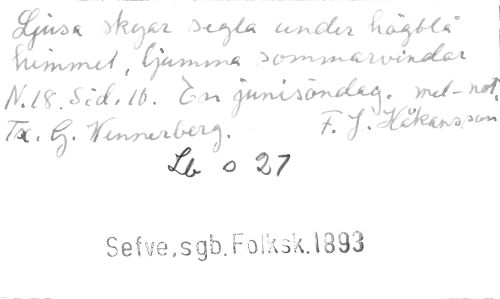 Ljusa skyar segla under högblå
himmel, ljumma sommarvindar
N.18. Sid. 16. En junisöndag. mel-not.
Tx. G. Wennerberg. F. J. Håkansson
Lb o 27
Sefve, sgb. Folksk. 1893